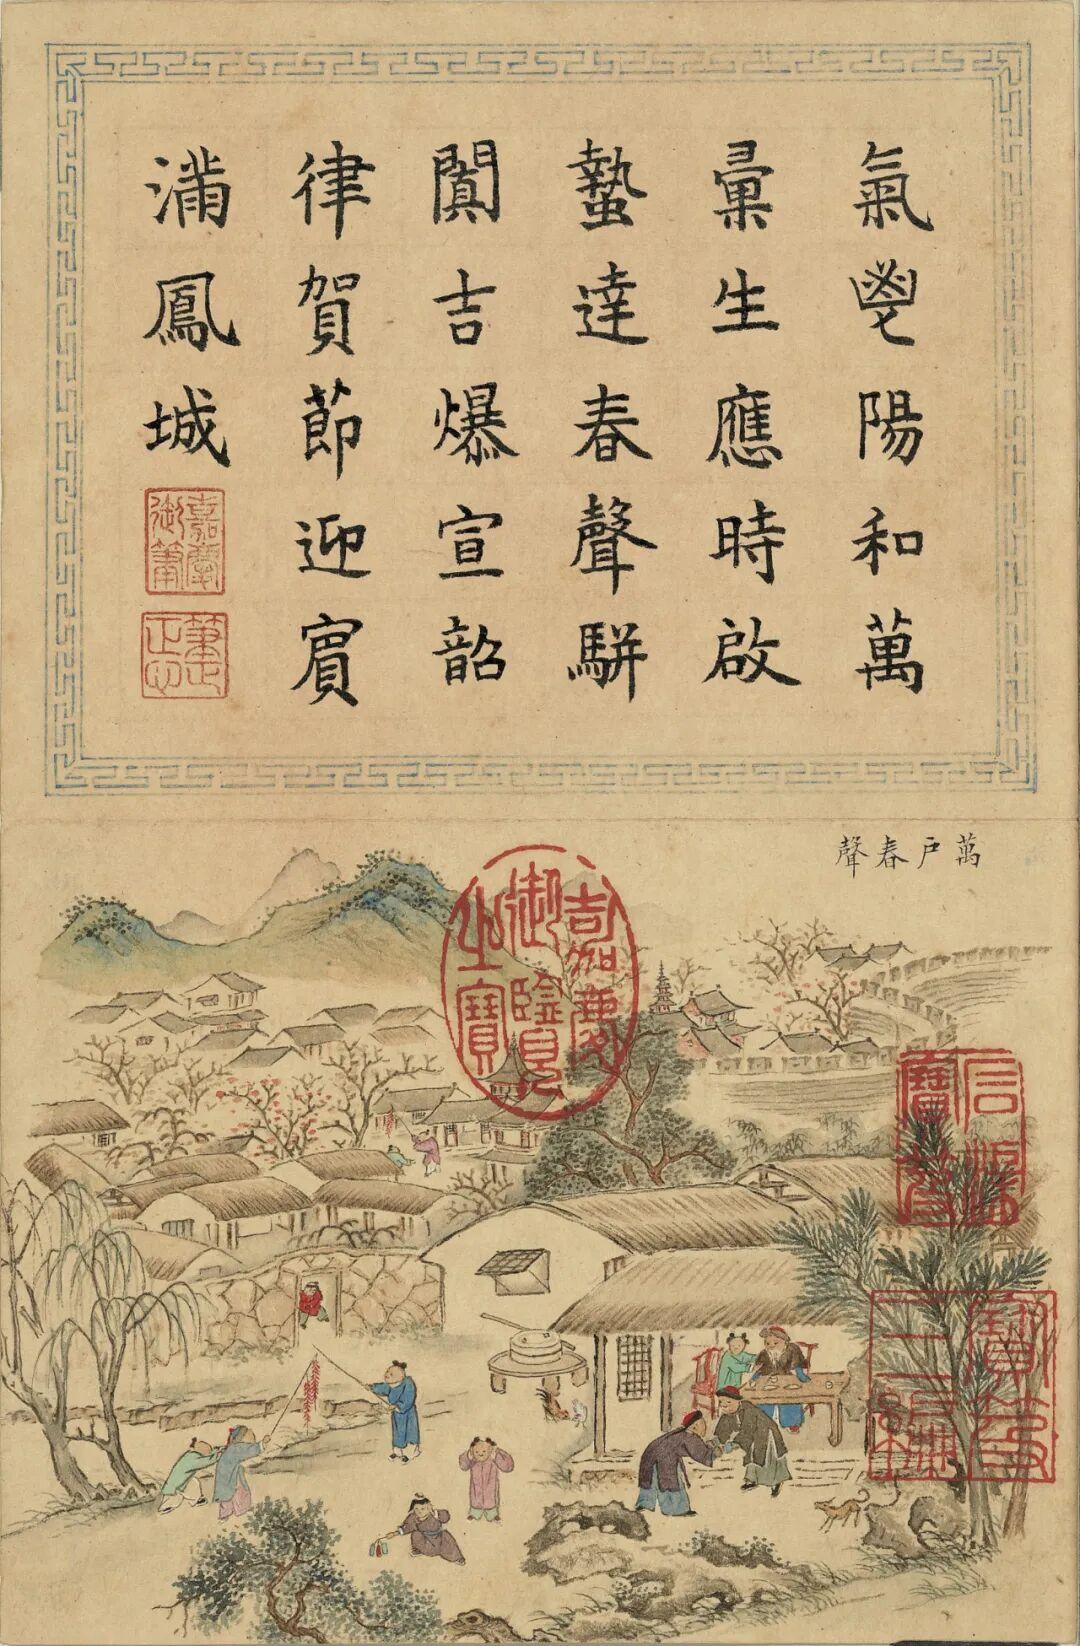 氣鬯陽和萬
彙生應時啟
蟄達春聲駢
闐吉爆宣韶
律賀節迎賓
滿鳳城
嘉慶御筆
萬戶春聲
嘉慶御覽之寶
石渠寶笈
寶笈三編